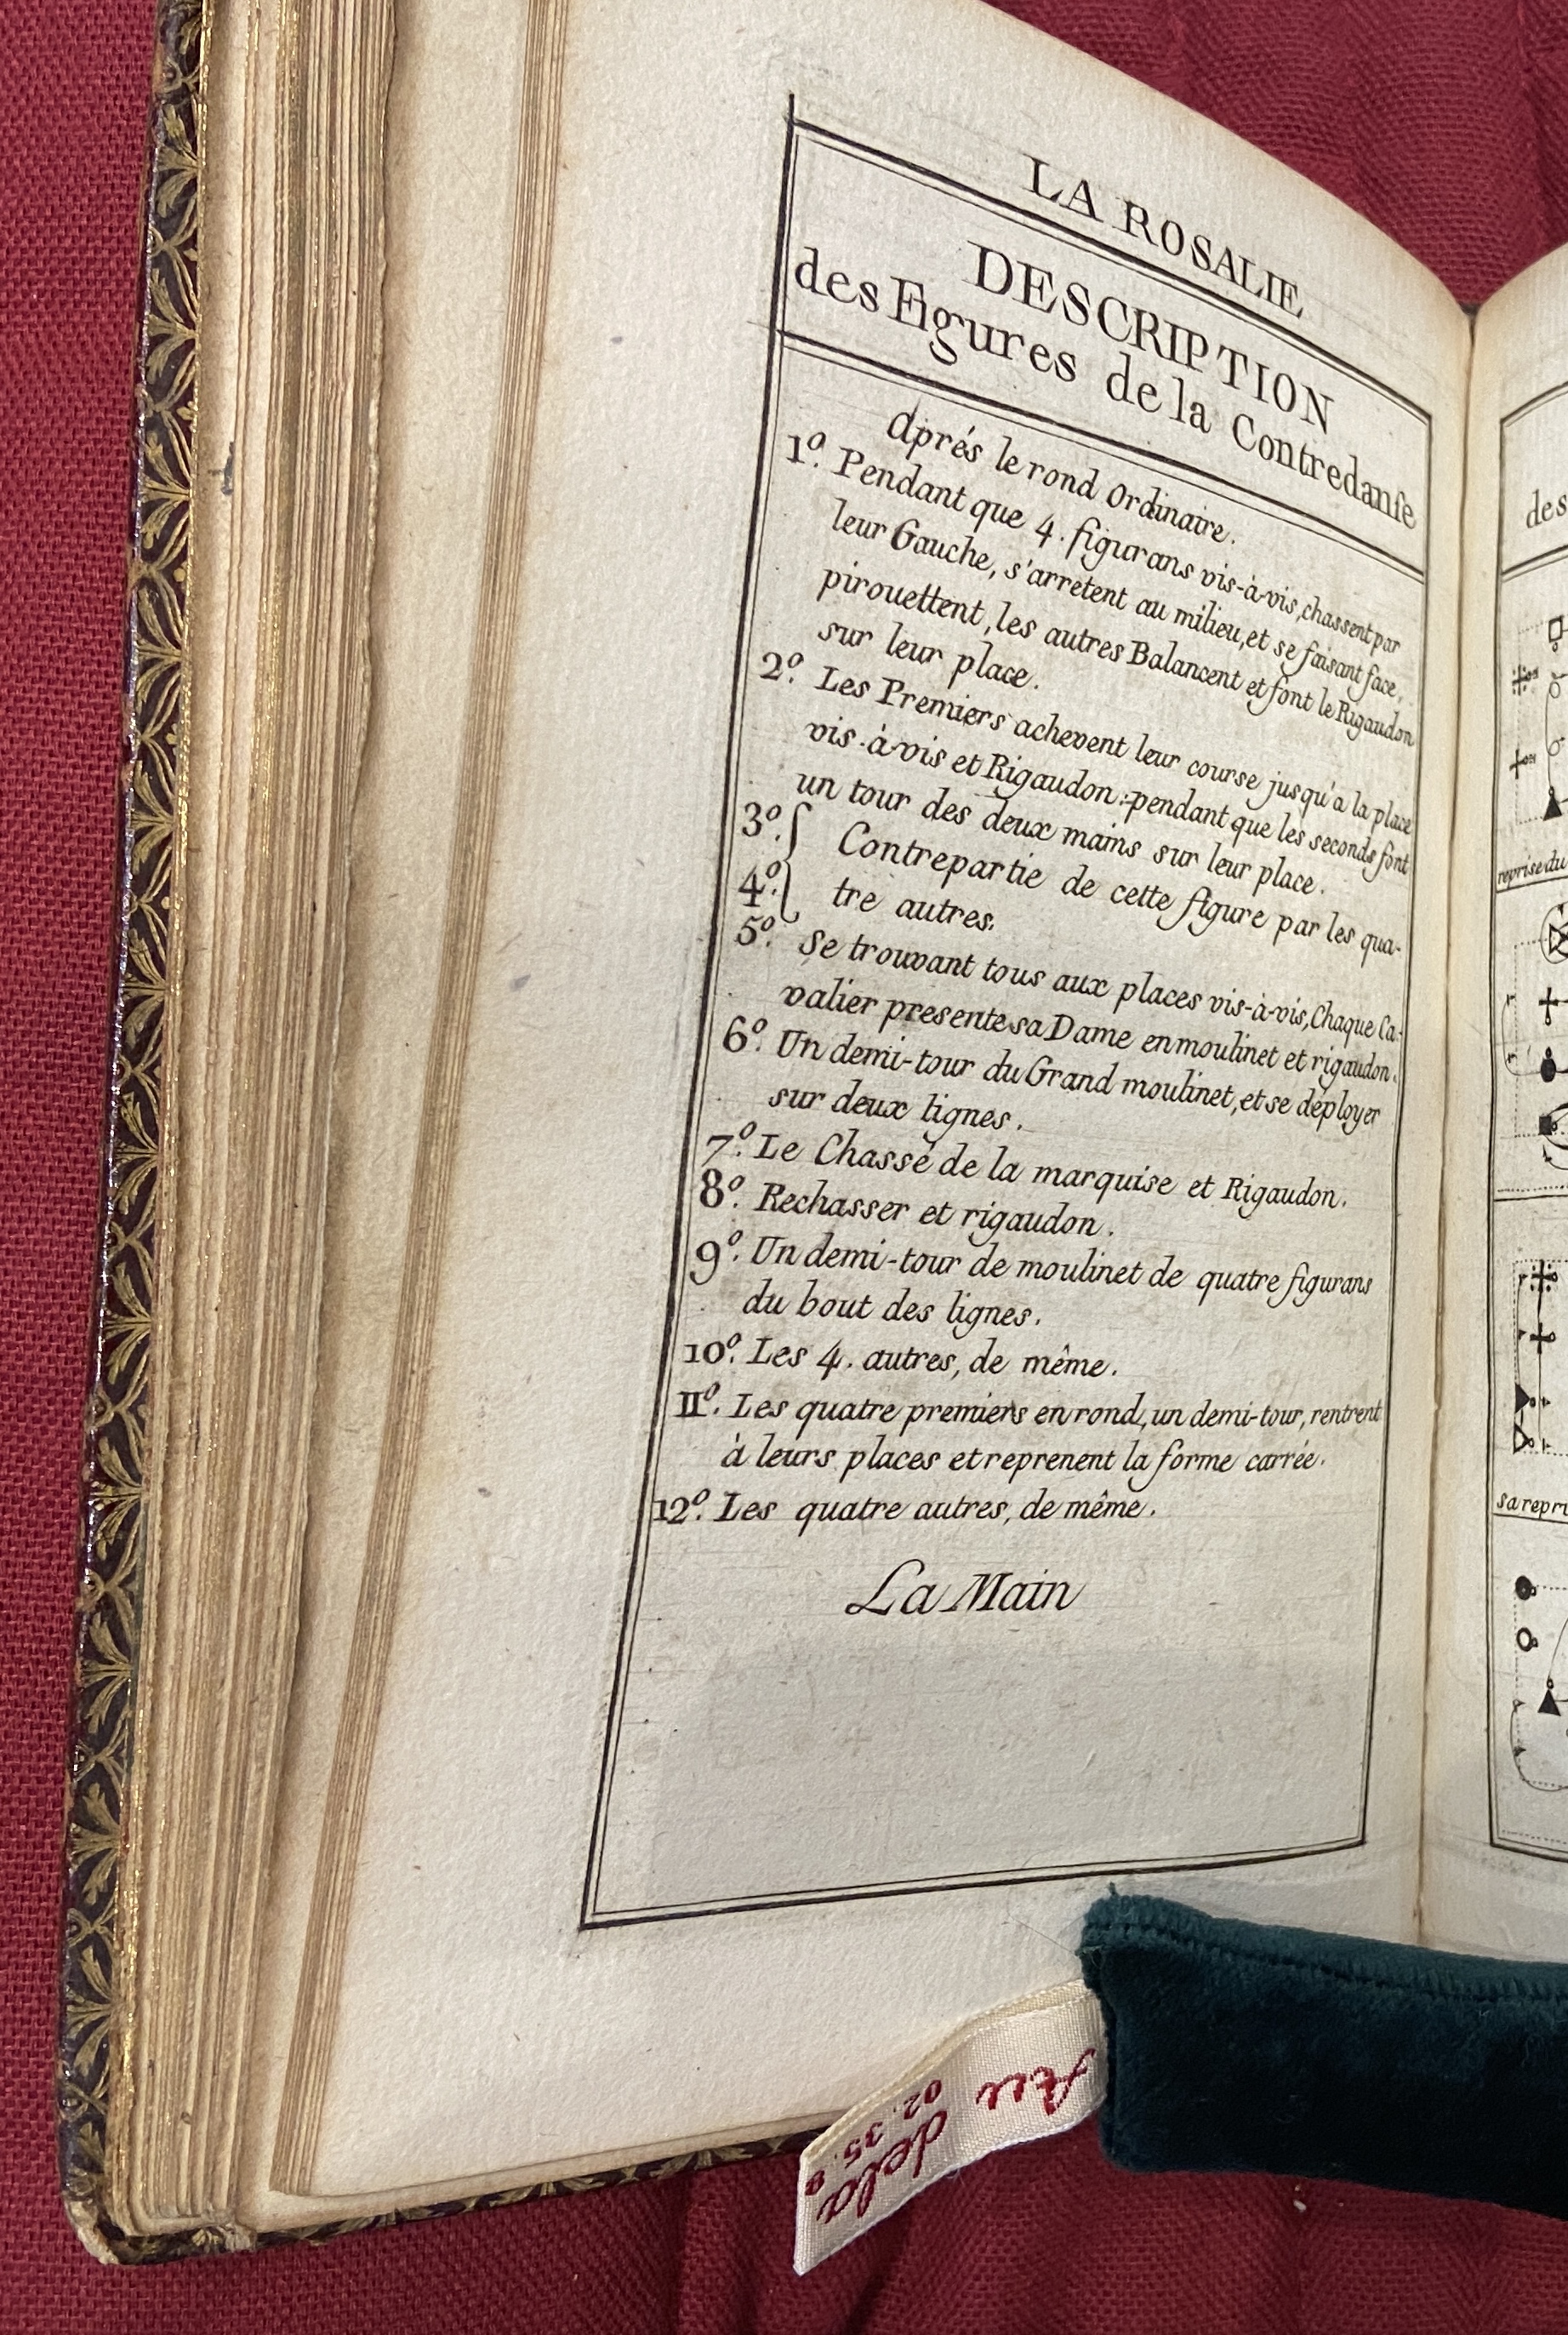 LA ROSALIE
DESCRIPTION
des Figures de la Contredanſe
Aprés le rond Ordinaire.
1º. Pendant que 4. figurans vis-à-vis, chassent par
leur Gauche, s'arretent au milieu, et se faisant face,
pirouettent, les autres Balancent et font le Rigaudon
sur leur place.
2º. Les Premiers achevent leur course jusqu'a la place
vis-à-vis et Rigaudon: pendant que les seconds font
un tour des deux mains sur leur place.
3º. Contrepartie de cette figure par les qua-
4º. tre autres.
5º. Se trouvant tous aux places vis-à-vis, Chaque Ca-
valier presente sa Dame en moulinet et rigaudon.
6º. Un demi-tour du Grand moulinet, et se déployer
sur deux lignes.
7º. Le Chassé de la marquise et Rigaudon.
8º. Rechasser et rigaudon.
9º. Un demi-tour de moulinet de quatre figurans
du bout des lignes.
10º. Les 4. autres, de même.
11º. Les quatre premiers en rond, un demi-tour, rentrent
à leurs places et reprenent la forme carrée.
12º. Les quatre autres, de même.
La Main
des
reprise du
sa repri
Au
dela
02.35.8